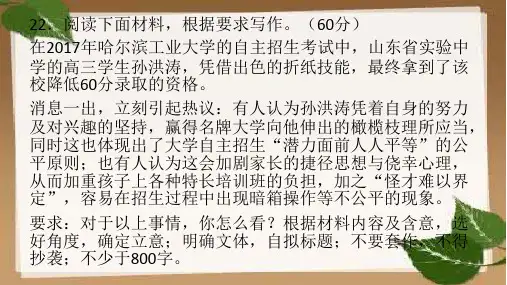 22、阅读下面材料，根据要求写作。（60分）
在2017年哈尔滨工业大学的自主招生考试中，山东省实验中
学的高三学生孙洪涛，凭借出色的折纸技能，最终拿到了该
校降低60分录取的资格。
消息一出，立刻引起热议：有人认为孙洪涛凭着自身的努力
及对兴趣的坚持，赢得名牌大学向他伸出的橄榄枝理所应当，
同时这也体现出了大学自主招生“潜力面前人人平等”的公
平原则；也有人认为这会加剧家长的捷径思想与侥幸心理，
从而加重孩子上各种特长培训班的负担，加之“怪才难以界
定”，容易在招生过程中出现暗箱操作等不公平的现象。
要求：对于以上事情，你怎么看？根据材料内容及含意，选
好角度，确定立意；明确文体，自拟标题；不要套作，不得
抄袭；不少于800字。